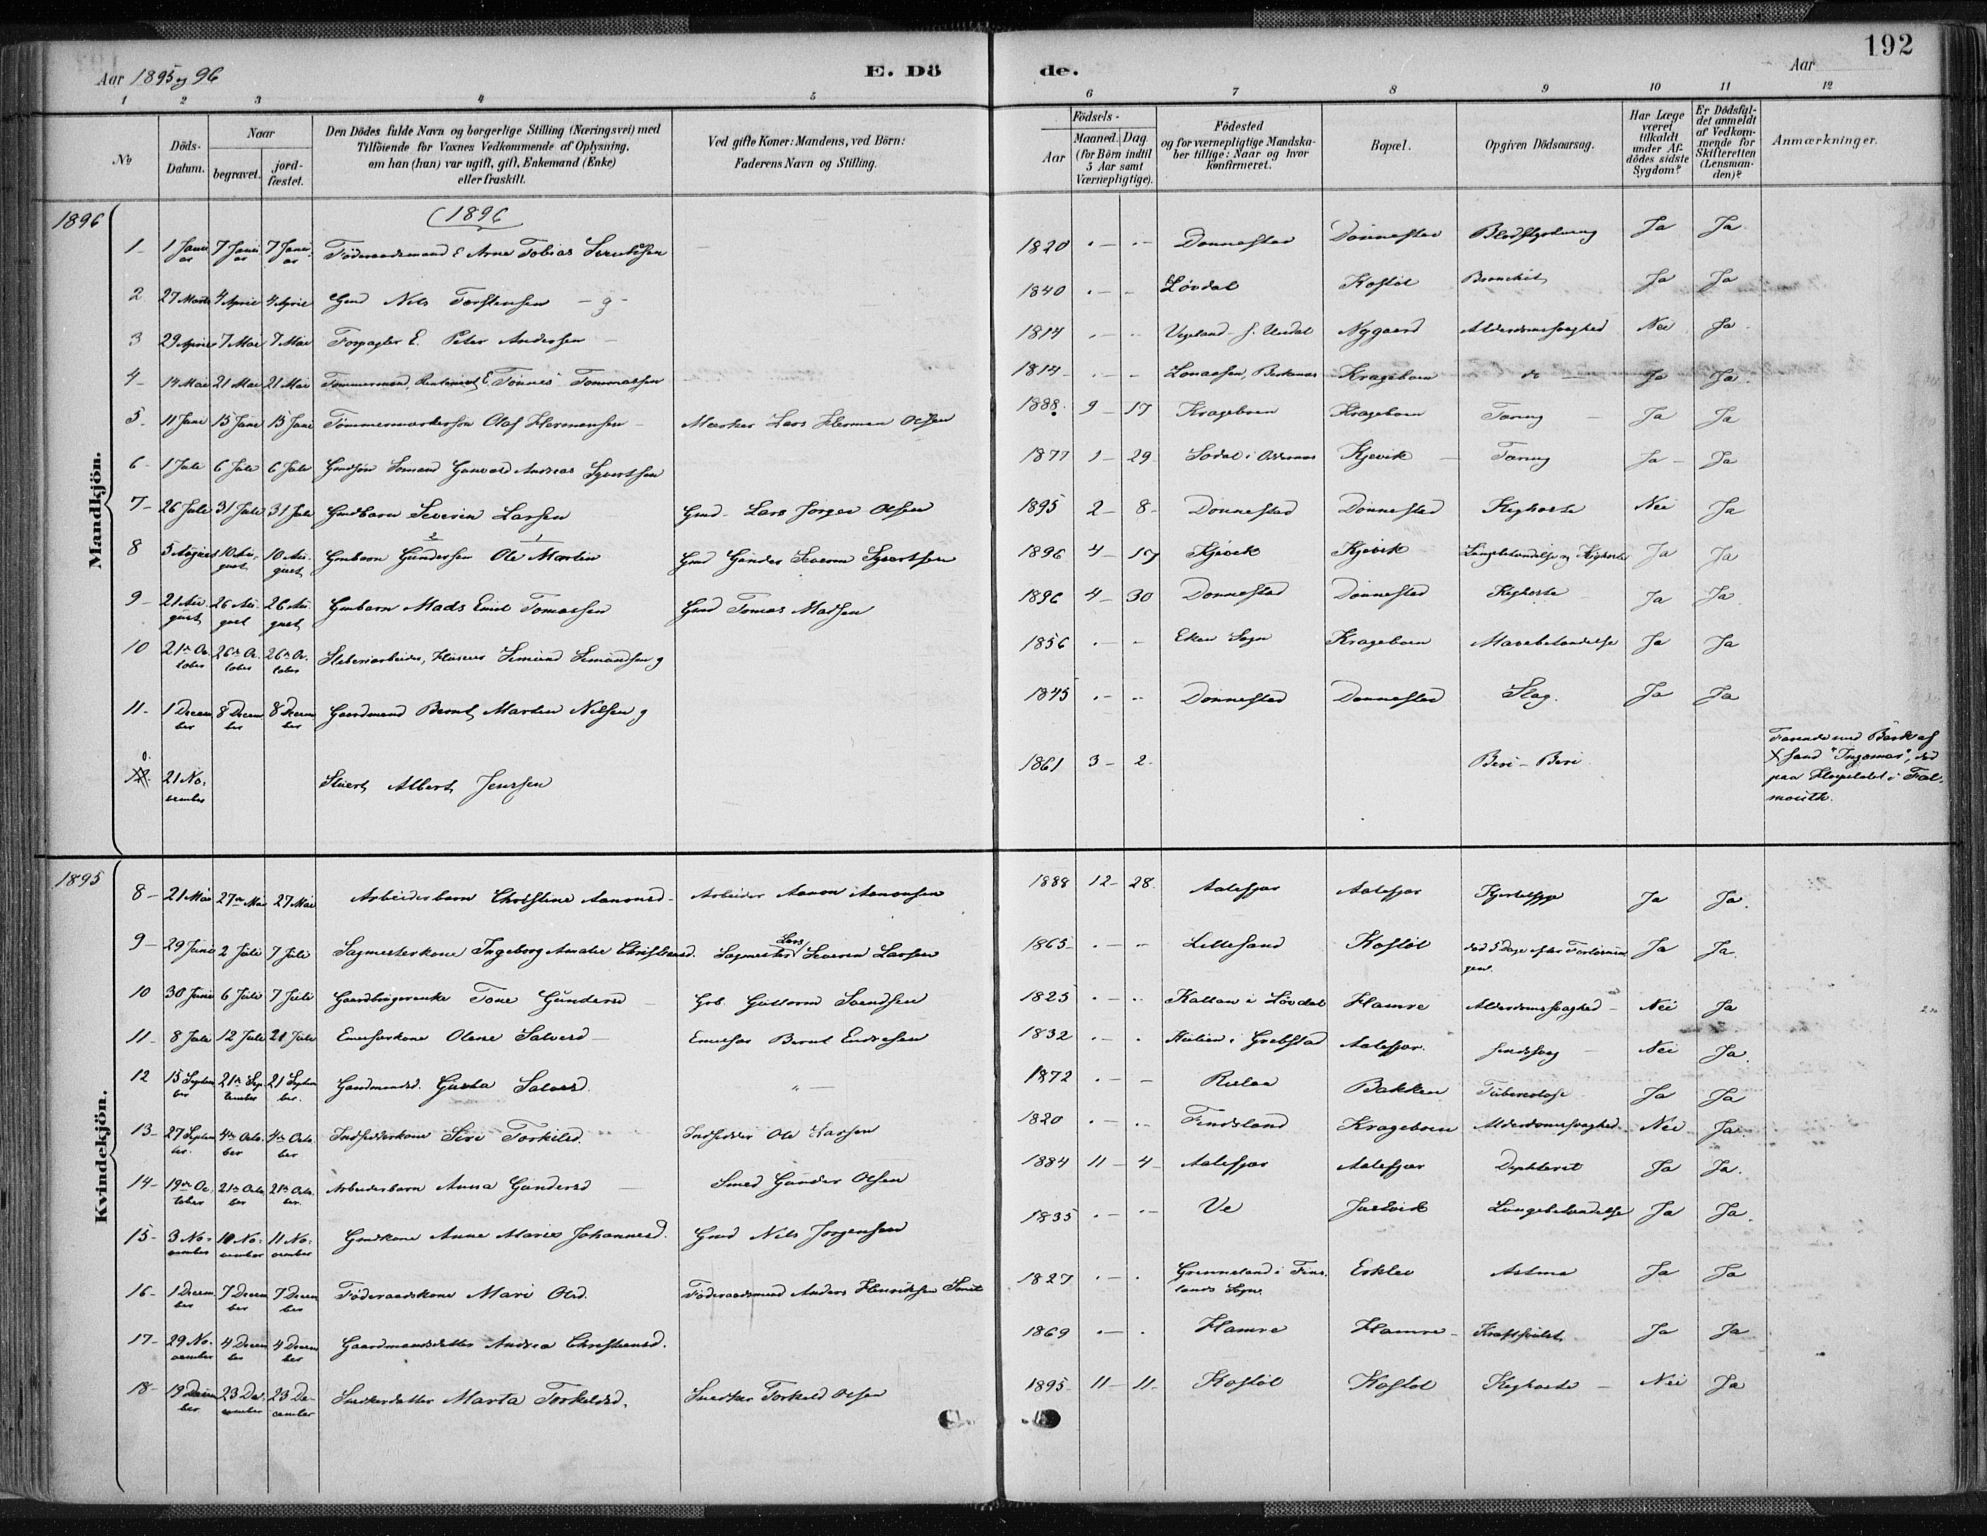 192
Aar 1895 og 96
E. Dö
de.
Aar
1 2 3 4 5 6 7 8 9 10 11 12
No
Döds-Datum.
Naar
begravet.
jord-fæstet.
Den Dödes fulde Navn og borgerlige Stilling (Næringsvei) med
Tilföiende for Voxnes Vedkommende af Oplysning,
om han (hun) var ugift, gift, Enkemand (Enke)
eller fraskilt.
Ved gifte Koner: Mandens, ved Börn:
Faderens Navn og Stilling.
Födsels-
Aar
Maaned. Dag
(for Börn indtil
5 Aar samt
Værnepligtige).
Födested
og for værnepligtige Mandska-
ber tillige: Naar og hvor
konfirmeret.
Bopæl.
Opgiven Dödsaarsag.
Har Læge
været
tilkaldt
under Af-
dödes sidste
Sygdom?
Er Dödsfal-
det anmeldt
af Vedkom-
mende for
Skifteretten
(Lensman-
den)?
Anmærkninger.
Mandkjön.
1896
1896
1 1 Januar 7 Januar 7 Januar Föderaadsmand E Arne Tobias 1820 Donnestad Donnestad Blodstyrtning Ja Ja
2 27 Marts 4 April 4 April Gmd Nils Torstensen g 1840 Lövdal Kostöl Ja Ja
3 29 April 7 Mai 7 Mai Forpagter E. Peter Andersen 1814 Nygaard Alderdomssvaghed Nei Ja
4 14 Mai 21 Mai 21 Mai Tömmermand, E. Tönnes Tommassen 1814 Krageboen do Ja Ja
5 11 Juni 15 Juni 15 Juni Tömmermerkersön Olaf Hermansen Mærker Lars Herman Olsen 1888 9 17 Krageboen Krageboen Tæring Ja Ja
6 1 Juli 6 Juli 6 Juli Gmdsön Sömand Gunvald Andreas Syvertsen 1877 1 29 Sodal i Oddernes Kjevik Tæring Ja Ja
7 26 Juli 31 Juli 31 Juli Gmdbarn Severin Larsen Gmd Lars Jörgen Olsen 1895 2 8 Donnestad Donnestad Kighoste Nei Ja
8 5 August 10 August 10 August Gmbarn Gundersen Ole Martin Gmd Gunder Severin Syvertsen 1896 4 17 Kjevik Kjevik Lungebetændelse og Kighoste Ja Ja
9 21 August 26 August 26 August Gmbarn Mads Emil Tomassen Gmd Tomas Madsen 1896 4 30 Donnestad Donnestad Kighoste Ja Ja
10 21de October 26de October 26de October Sliberiarbeider, Semund Semundsen g 1856 Eken Sogn Krageboen Mavebetændelse Ja Ja
11 1 December 8 December 8 December Gaardmand Bernt Martin Nilsen g 1845 Donnestad Donnestad Slag. Ja Ja
21 November Albert Jensen 1861 3 2 Beri-Beri
Farende med Bark af
X sand "Ingomar", död
paa Hospitalet i Fal-
mouth.
Kvindekjön.
1895
8 21 Mai 27de Mai 27 Mai Arbeiderbarn Christine Aanonsd. Arbeider Aanon Aanonsen 1888 12 28 Aalefjær Aalefjær Ja Ja.
9 29 Juni 2 Juli 7 Juli Sagmesterkone Ingeborg Amalie Christensd. Sagmester Lars Severin Larsen 1865 Lillesand Kostöl död 5 Dage efter Forlösningen. Ja Ja.
10 30 Juni 6 Juli 7 Juli Gaardbrugerenke Tone Gundersd Grb. Guttorm Svendsen 1825 Kallan i Lövdal Hamre Alderdomssvaghed Nei Ja
11 8 Juli 12 Juli 21 Juli Olene Salvesd Bernt Endresen 1832 Grebstad Aalefjær. Nei Ja.
12 15 September 21de September 21 September Gaardmandsd. Gusta Salvesd. 1872 Bakken Tuberculose Ja Ja
13 27 September 4de October 4de October Indsidderkone Siri Torkilsd. Indsidder Ole Larsen 1820 Findsland Krageboen Alderdomssvaghed Nei Ja.
14 19de October 21de October 21de October Arbeiderbarn Anna Gundersd Smed Gunder Olsen 1884 11 4 Aalefjær Aalefjær Difterit Ja Ja.
15 3 November 10 November 11 November Gmdkone Anne Marie Johannesd. Gmd Nils Jörgensen 1835 Ve Justvik Lungebetændelse Ja Ja.
16 1 December 7 December 7 December Föderaadskone Mari Olsd. Föderaadsmand Anders Henriksen 1827 Grönneland i Finslands Sogn Erklev Astma Ja Ja
17 29 November 4 December 4 December Gaardmandsdatter Andrea Christensd. 1869 Hamre Hamre Ja Ja
18 19 December 23 December 23 December Snedkerdatter Marta Torkelsd. Snedker Torkeld Olsen 1895 11 11 Kostöl Kostöl Kighoste Nei Ja